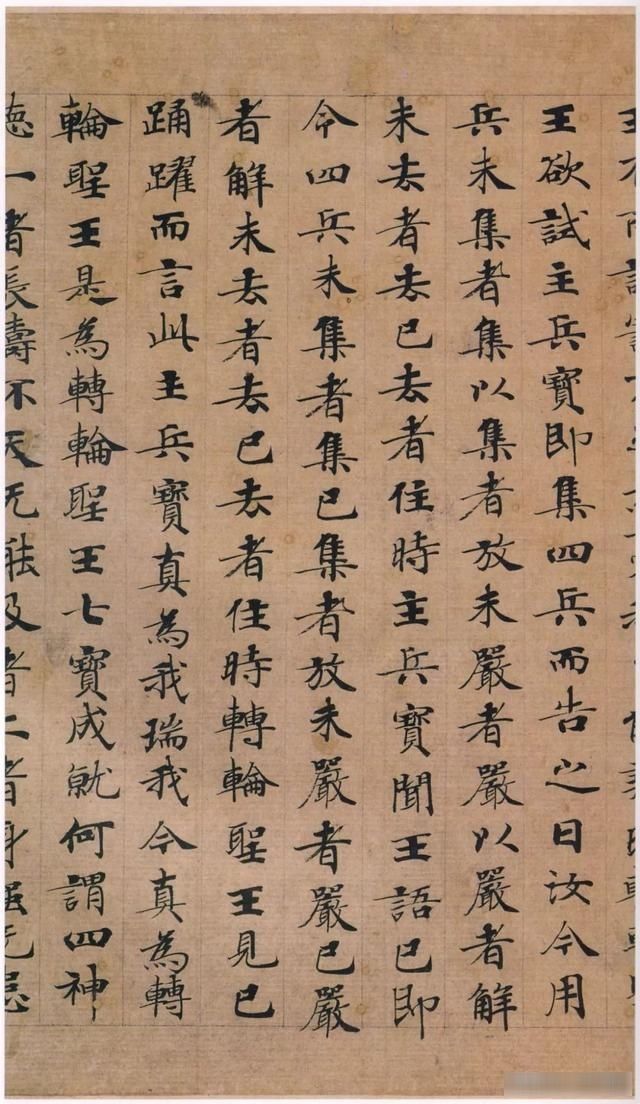 王欲試主兵寶即集四兵而告之曰汝今用
兵未集者集以集者放未嚴者嚴以嚴者解
未去者去已去者住時主兵寶聞王語已即
令四兵未集者集已集者放未嚴者嚴已嚴
者解未去者去已去者住時轉輪聖王見已
踊躍而言此主兵寶真為我瑞我今真為轉
輪聖王是為轉輪聖王七寶成就何謂四神
德一者長壽不夭无能及者二者身強无